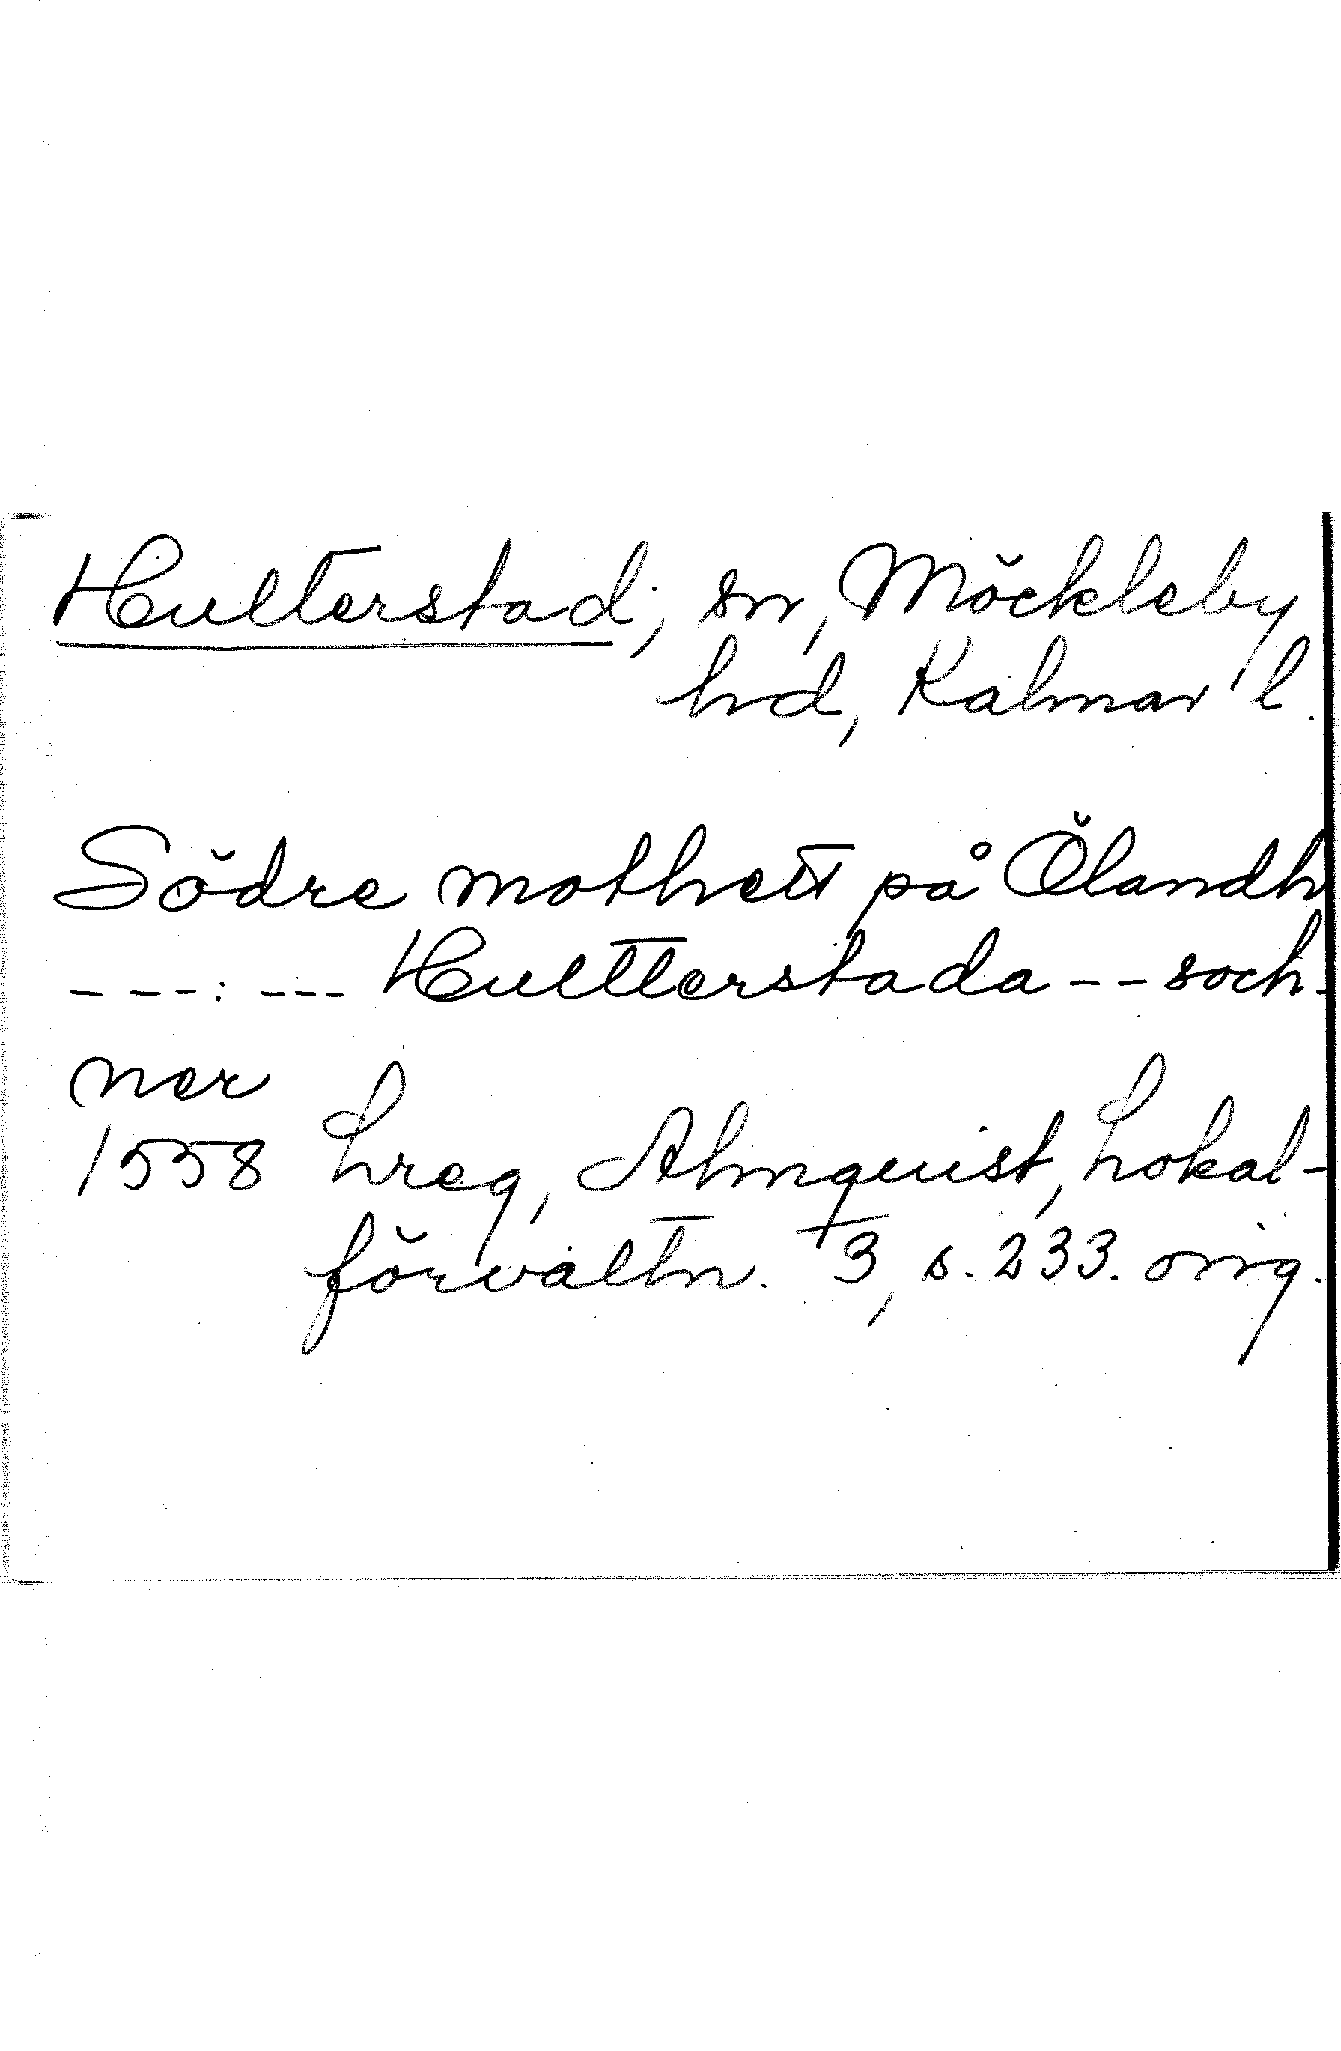 Hulterstad, sn, Möckleby
hd, Kalmar l.
Södre mothett på Ölandh
---: --- Hultterstada -- soch-
ner
1558 Lreg, Almquist, Lokal-
förvaltn. 3, s. 233. orig.